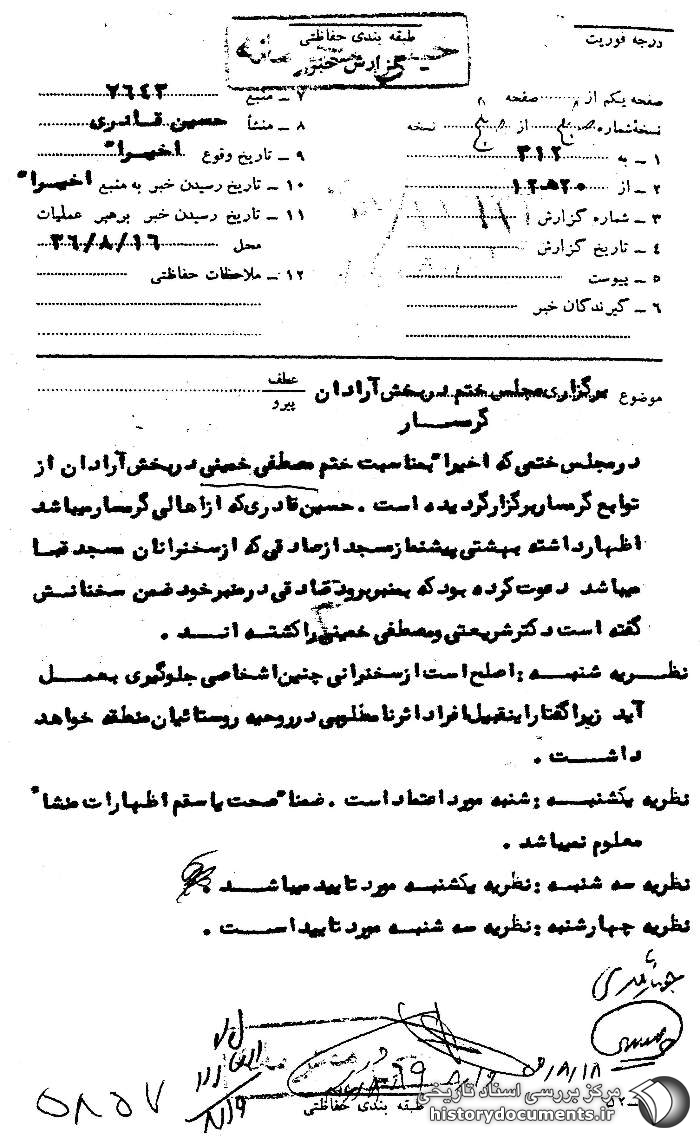 درجه فوریت
طبقه بندی حفاظتی
گزارش خبر
صفحه یکم از صفحه
نسخه شماره از نسخه
۱ ـ به ۳۱۲
۲ ـ از ۱۲ه۲۰
۳ ـ شماره گزارش
۴ ـ تاریخ گزارش
۵ ـ پیوست
۶ ـ گیرندگان خبر
۷ ـ منبع ۲۶۴۳
۸ ـ منشأ حسین قادری
۹ ـ تاریخ وقوع اخیرا"
۱۰ ـ تاریخ رسیدن خبر به منبع اخیرا"
۱۱ ـ تاریخ رسیدن خبر برهبر عملیات
محل ۳۶/۸/۱۶
۱۲ ـ ملاحظات حفاظتی
موضوع برگزاری مجلس ختم در بخش آرادان
گرمسار
عطف
پیرو
در مجلس ختمی که اخیرا" بمناسبت ختم مصطفی خمینی در بخش آرادان از
توابع گرمسار برگزار گردیده است . حسین قادری که از اهالی گرمسار میباشد
اظهار داشته بهشتی پیشنماز مسجد از صادقی که از سخنرانان مسجد قبا
میباشد دعوت کرده بود که بمنبر برود صادقی در منبر خود ضمن سخنانش
گفته است دکتر شریعتی و مصطفی خمینی را کشته اند .
نظریه شنبه : اصلح است از سخنرانی چنین اشخاصی جلوگیری بعمل
آید زیرا گفتار اینقبیل افراد اثر نامطلوبی در روحیه روستائیان منطقه خواهد
داشت .
نظریه یکشنبه : شنبه مورد اعتماد است . ضمنا" صحت یا سقم اظهارات منشا"
معلوم نمیباشد .
نظریه سه شنبه : نظریه یکشنبه مورد تایید میباشد .
نظریه چهارشنبه : نظریه سه شنبه مورد تایید است .
۵۸۵۷
طبقه بندی حفاظتی
مرکز بررسی اسناد تاریخی
historydocuments.ir